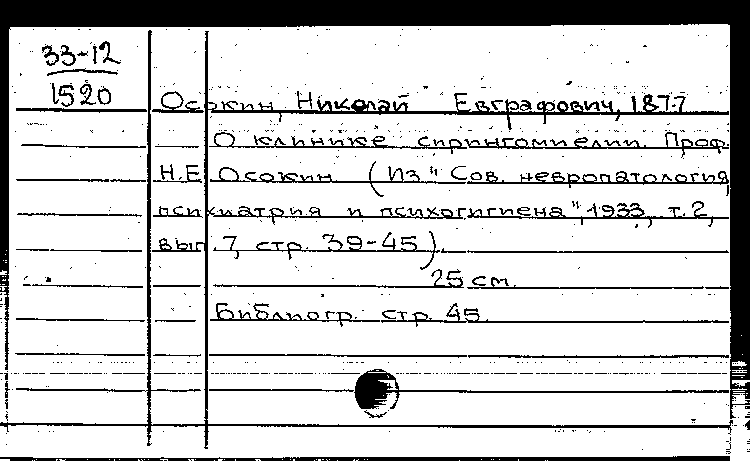 33-12
1520
Осокин, Николай Евграфович, 1877
О клинике сирингомиелии. Проф.
Н.Е. Осокин (Из "Сов. невропатология,
психиатрия и психогигиена", 1933, т. 2,
вып. 7, стр. 39-45).
25 см.
Библиогр. стр. 45.